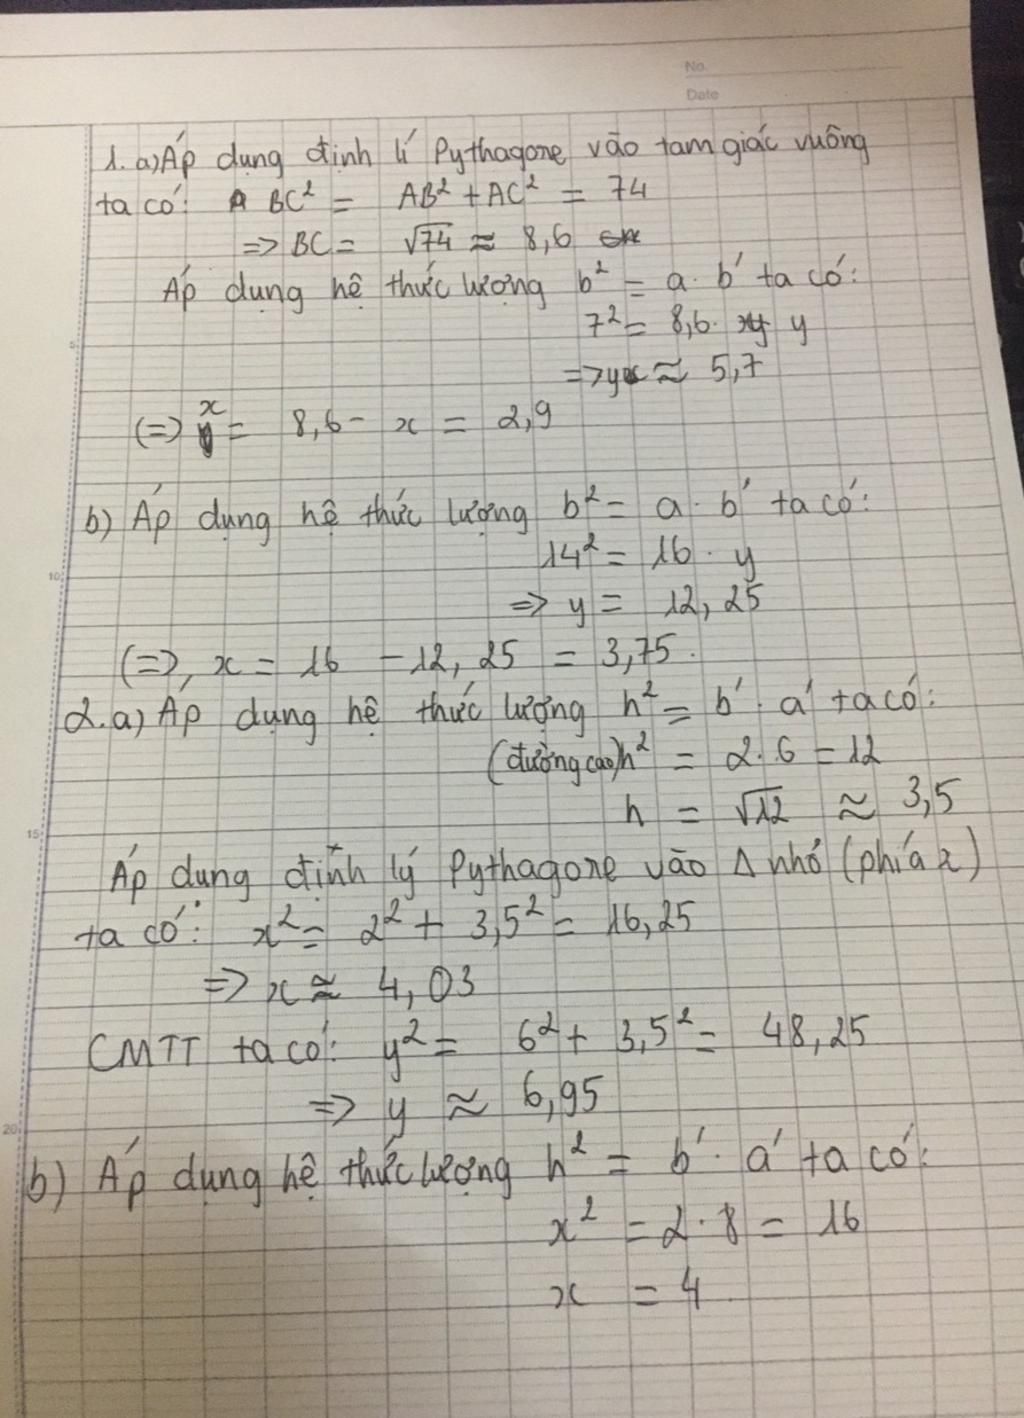 No.
Date
1. a) Áp dụng định lí Pythagore vào tam giác vuông
ta có: BC² = AB² + AC² = 74
=> BC = √74 ≈ 8,6
Áp dụng hệ thức lượng b² = a. b' ta có:
7² = 8,6. y
=> y ≈ 5,7
(=) x = 8,6 - x = 2,9
5
b) Áp dụng hệ thức lượng b² = a. b' ta có:
14² = 16. y
10
=> y = 12,25
(=), x = 16 - 12,25 = 3,75.
2. a) Áp dụng hệ thức lượng h² = b'. a' ta có:
(đường cao) h² = 2. 6 = 12
h = √12 ≈ 3,5
15
Áp dụng định lý Pythagore vào Δ nhỏ (phía x)
ta có: x² = 2² + 3,5² = 16,25
=> x ≈ 4,03
CMTT ta có: y² = 6² + 3,5² = 48,25
=> y ≈ 6,95
20
b) Áp dụng hệ thức lượng h² = b'. a' ta có:
x² = 2. 8 = 16
x = 4